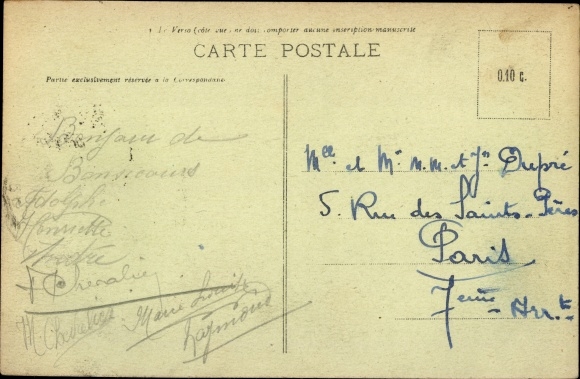 Le Verso (côté vue) ne doit comporter aucune inscription manuscrite
CARTE POSTALE
Partie exclusivement réservée à la Correspondance
0.10 c.
Bonjour de
Adolphe
Henriette
Chevalier
M. Chevalier
Marie Louise
Raymond
Mlle et Mr M.M. et Jn Dupré
5. Rue des Saints-Pères
Paris
7eme Arr.t